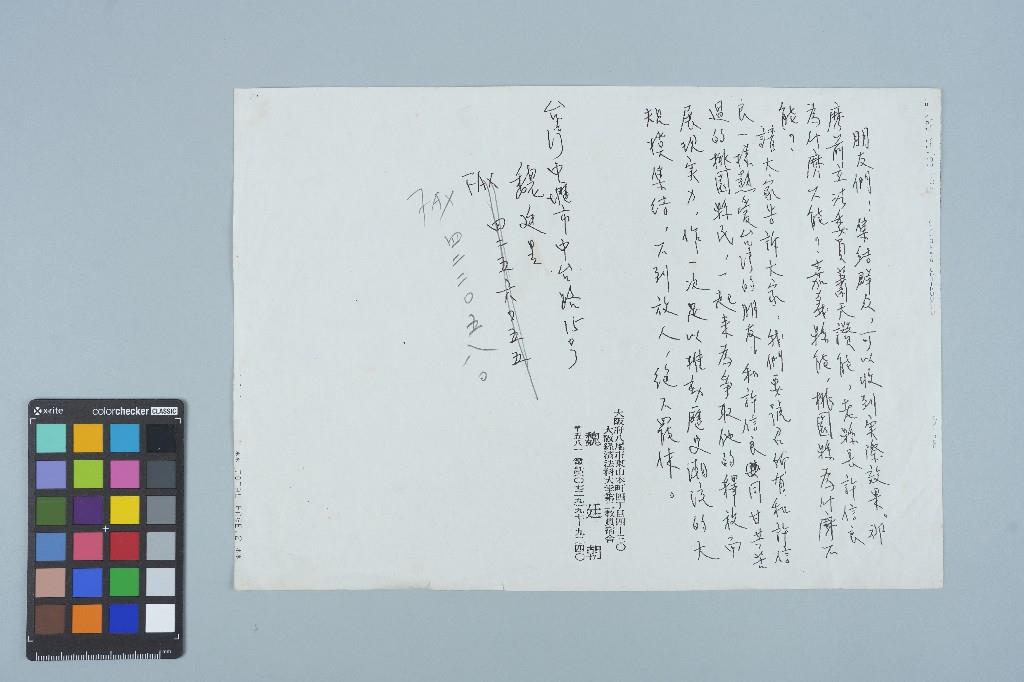 朋友們!集結群众,可以收到實際效果。那
麼前立法委員蕭天讚能,老縣長許信良
為什麼不能?嘉義縣能,桃園縣為什麼不
能?
請大家告訴大家,我們要號召所有和許信
良一樣熱愛台灣的朋友,和許信良興同甘共苦
過的桃園縣民,一起来為爭取他的釋放而
展現实力,作一次足以推動歷史潮流的大
規模集结,不到放人,絕不罷休。
大阪府八尾市東山本町四丁目四-三〇
大阪経済法科大学第二教員宿舍
魏 廷 朝
台灣中壢市中台路15号
魏廷昱
FAX 四二五六九五五
FAX 四二二〇五八〇
x-rite
colorchecker CLASSIC
mm